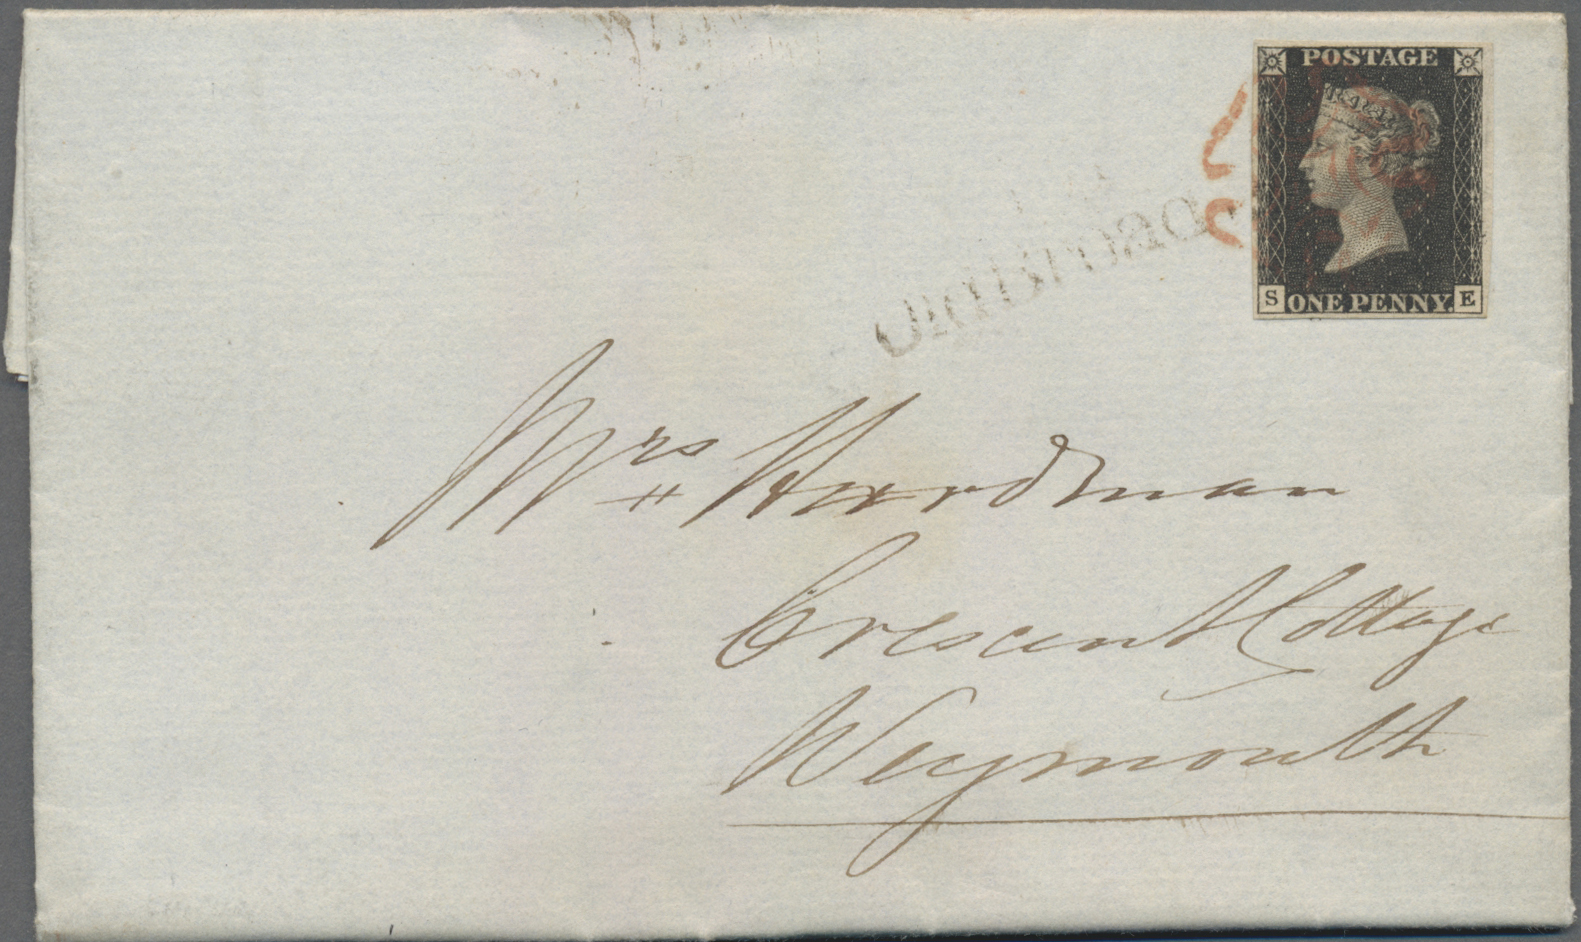 POSTAGE
S ONE PENNY. E
Mrs Hurdman
Crescent Cottage
Weymouth